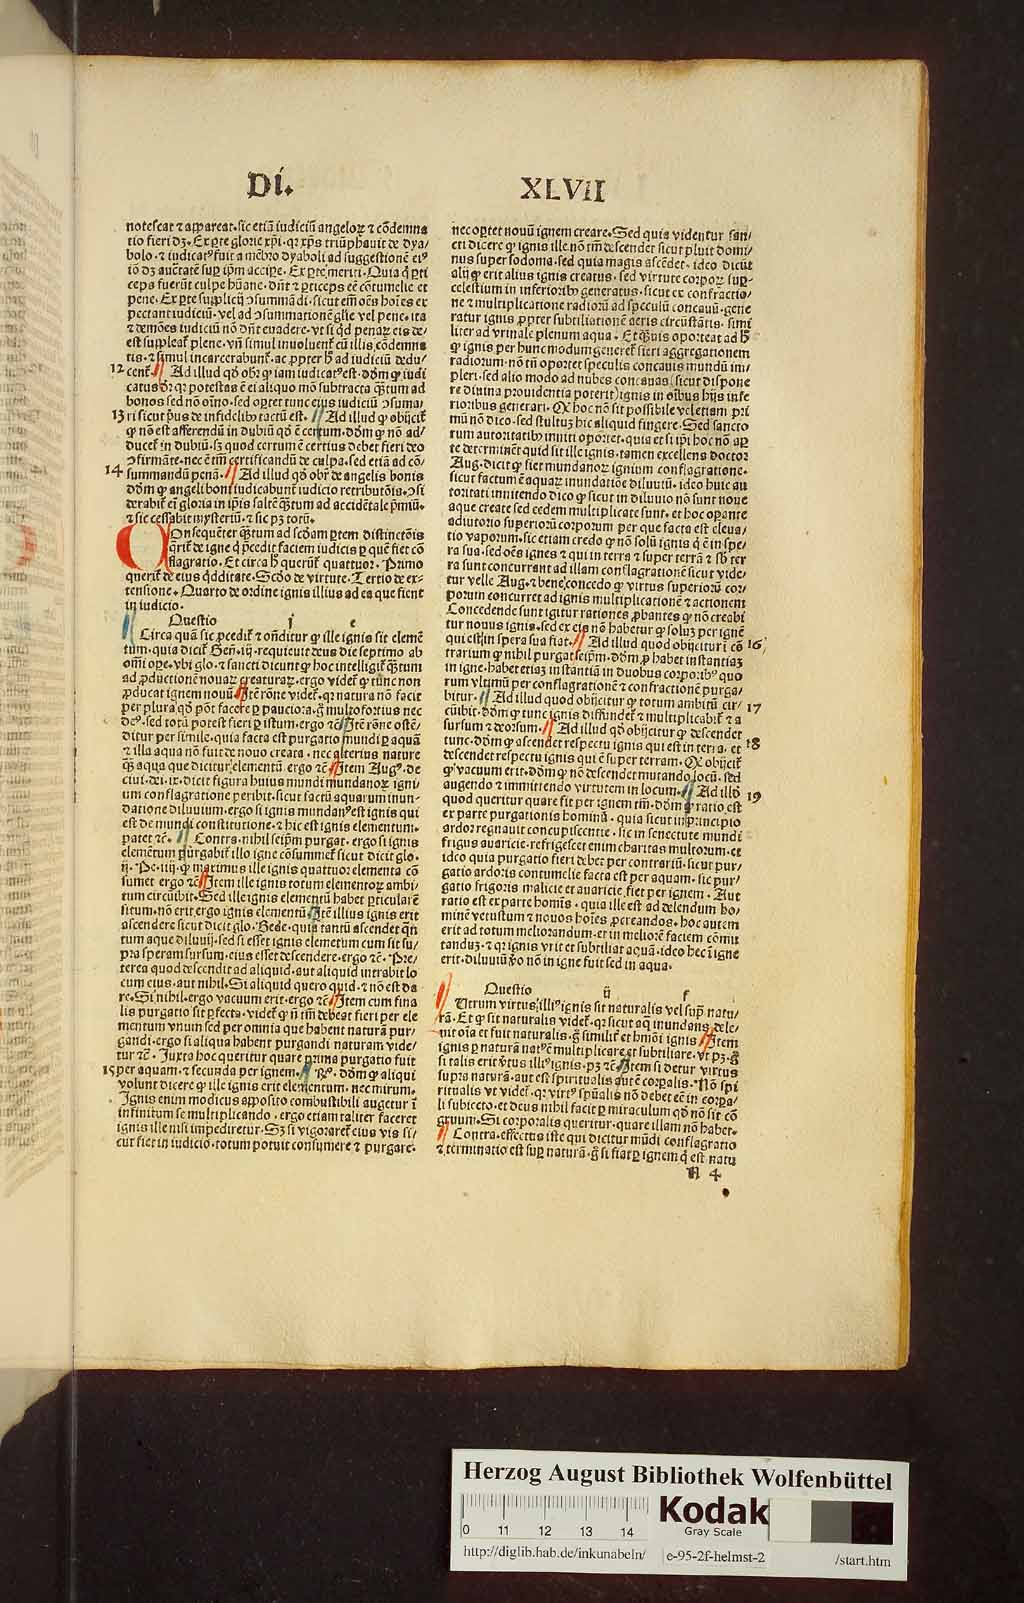 Di.
XLVII
notescat ⁊ appareat. sic etiā iudiciū angeloꝝ ⁊ cōdemna
tio fieri dꝫ. Ex ꝑte glorie xp̄i. qꝛ xp̄s triūphauit de dya/
bolo. ⁊ iudicatꝰ fuit a mēbro dyaboli ad suggestionē eiꝰ
iō dꝫ auctātē suꝑ ip̄m accipe. Ex ꝑte meriti. Quia q̄ ꝑti
ceps fuerūt culpe hūane. dn̄t ⁊ ꝑticeps eē cōtumelie et
pene. Ex ꝑte supplicij ꝯsummādi. sicut em̄ oēs hoīes ex
pectant iudiciū. vel ad ꝯsummationē glīe vel pene. ita
⁊ demōes iudiciū nō dn̄t euadere. vt si qd penaꝝ eis de/
est suppleat plene. vn̄ simul inuoluent cū illis cōdemna
tis. ⁊ simul incarcerabunt. ac ꝓpter hͦ ad iudiciū dedu/
12 cent. Ad illud qd obr ꝙ iam iudicatꝰ est. dōm ꝙ iudi
catus dr. qꝛ potestas ē ei aliquo mō subtracta q̄tum ad
bonos sed nō oīno. sed oꝑtet tunc eius iudiciū ꝯsuma/
13 ri sicut pͥus de infidelibꝰ tactū est. Ad illud ꝙ obijcit
ꝙ nō est afferendū in dubiū qd ē certum. dōm ꝙ nō ad/
ducet in dubiū. sꝫ quod certum ē certius debet fieri deo
ꝯfirmāte. nec ē tm̄ certificandū de culpa. sed etiā ad cō/
14 summandū penā. Ad illud qd obr de angelis bonis
dōm ꝙ angeli boni iudicabunt iudicio retributōis. ꝯsi
derabit em̄ gloria in ip̄is saltē q̄tum ad accidētale p̄miū.
⁊ sic cessabit mysteriū. ⁊ sic pꝫ totū.
COnsequēter q̄tum ad scdam ꝑtem distinctōis
q̄rit de igne q̄ p̄cedit faciem iudicis ꝑ quē fiet cō
flagratio. Et circa hͦ querūt quattuor. Primo
querit de eius qdditate. Scdo de virtute. Tertio de ex/
tensione. Quarto de ordine ignis illius ad ea que fient
in iudicio.
Questio j e
Circa quā sic ꝓcedit ⁊ on̄ditur ꝙ ille ignis sit elemē
tum. quia dicit Gen. ij. requieuit deus die septimo ab
om̄i oꝑe. vbi glo. ⁊ sancti dicunt ꝙ hoc intelligit q̄tum
ad ꝓductionē nouaꝝ creaturaꝝ. ergo videt ꝙ tunc non
ꝓducat ignem nouū. Itē rōne videt. qꝛ natura nō facit
per plura qd pōt facere ꝑ pauciora. g̊ multofortius nec
deꝰ. sed totū potest fieri ꝑ istum. ergo ⁊c̄ Itē rōne ostē/
ditur per simile. quia facta est purgatio mundi ꝑ aquā
⁊ illa aqua nō fuit de nouo creata. nec alterius nature
q̄ aqua que dicitur elementū. ergo ⁊c̄ Item Augꝰ. de
ciui. dei. ix. dicit figura huius mundi mundanoꝝ igni/
um conflagratione peribit. sicut factū aquarum inun/
datione diluuium. ergo si ignis mundanꝰ est ignis qui
est de mundi constitutione. ⁊ hic est ignis elementum.
patet ⁊c̄. Contra. nihil seip̄m purgat. ergo si ignis
elemētum purgabit illo igne cōsummet sicut dicit glo.
ij. Pe. iij. ꝙ maximus ille ignis quattuor elementa cō
sumet ergo ⁊c̄ Item ille ignis totum elementoꝝ ambi/
tum circūibit. Sed ille ignis elementū habet ꝑticularē
situm. nō erit ergo ignis elementū Itē illius ignis erit
ascendere sicut dicit glo. Bede. quia tantū ascendet q̄n
tum aque diluuij. sed si esset ignis elemētum cum sit su/
pra speram suaꝫ. eius esset descendere. ergo ⁊c̄. Pre/
terea quod descendit ad aliquid. aut aliquid intrabit lo
cum eius. aut nihil. Si aliquid quero quid. ⁊ nō est da
re. Si nihil. ergo vacuum erit. ergo ⁊c̄ Item cum fina
lis purgatio sit ꝑfecta. videt ꝙ nō tm̄ debeat fieri per ele
mentum vnum sed per omnia que habent naturā pur/
gandi. ergo si aliqua habent purgandi naturam vide/
tur ⁊c̄. Juxta hoc queritur quare prima purgatio fuit
15 per aquam. ⁊ secunda per ignem. Rꝰ. dōm ꝙ aliqui
volunt dicere ꝙ ille ignis erit elementum. nec mirum.
Ignis enim modicus apposito combustibili augetur ī
infinitum se multiplicando. ergo etiam taliter faceret
ignis ille nisi impediretur. Sꝫ si vigoraret eius vis si/
cut fiet in iudicio. totum potuit consumere ⁊ purgare.
nec oꝑtet nouū ignem creare. Sed quia videntur san/
cti dicere ꝙ ignis ille nō tm̄ descendet sicut pluit domi/
nus super sodoma. sed quia magis ascēdet. ideo dicūt
alij ꝙ erit alius ignis creatus. sed virtute corpoꝝ suꝑ/
celestium in inferioribꝰ generatus. sicut ex confractio/
ne ⁊ multiplicatione radiorū ad speculū concauū. gene
ratur ignis ꝓpter subtiliationē aeris circūstātis. simi
liter ad vrinale plenum aqua. Et q̄uis oporteat ad hͦ
ꝙ ignis per hunc modum generet fieri aggregationem
radiorum. nō tn̄ oportet speculis concauis mundū im/
pleri. sed alio modo ad nubes concauas (sicut dispone
re diuina prouidentia poterit) ignis in oībus hijs infe
rioribus generari. Qd hoc nō sit possibile vel etiam pri
mū nō dico. sed stultuꝫ hic aliquid fingere. Sed sancto
rum autoritatibꝰ inniti oportet. quia et si ip̄i hoc nō aꝑ
te determinēt quid sit ille ignis. tamen excellens doctor
Aug. dicit ꝙ fiet mundanoꝝ ignium conflagratione.
sicut factum ē aquaꝝ inundatiōe diluuiū. ideo huic au
toritati innitendo dico ꝙ sicut in diluuio nō sunt noue
aque create sed eedem multiplicate sunt. et hoc oꝑante
adiutorio superiorū corporum per que facta est eleua/
tio vaporum. sic etiam credo ꝙ nō solū ignis q̄ ē in spe/
ra sua. sed oēs ignes ⁊ qui in terra ⁊ super terrā ⁊ sb ter
ra sunt concurrant ad illam conflagrationē sicut vide/
tur velle Aug. ⁊ bene. concedo ꝙ virtus superiorū cor/
porum concurret ad ignis multiplicationē ⁊ actionem
Concedende sunt igitur rationes ꝓbantes ꝙ nō creabi
tur nouus ignis. sed ex eis nō habetur ꝙ soluꝫ per ignē
qui est in spera sua fiat. Ad illud quod obijcitur ī cō 16
trarium ꝙ nihil purgat seip̄m. dōm. ꝓ habet instantiaꝫ
in igne. habet etiaꝫ instantiā in duobus corporibꝰ quo
rum vltimū per conflagrationē ⁊ confractionē purga/
bitur. Ad illud quod obijcitur ꝙ totum ambitū cir/ 17
cūibit. dōm ꝙ tunc ignis diffundet ⁊ multiplicabit ⁊ a
sursum ⁊ deorsum. Ad illud qd obijcitur ꝙ descendet
tunc. dōm ꝙ ascendet respectu ignis qui est in terra. et 18
descendet respectu ignis qui ē super terram. Qd obijcit
ꝙ vacuum erit. dōm ꝙ nō descendet mutando locū. sed
augendo ⁊ immittendo virtutem in locum. Ad illd 19
quod queritur quare fit per ignem tm̄. dōm ꝙ ratio est
ex parte purgationis hominū. quia sicut in principio
ardor regnauit concupiscentie. sic in senectute mundi
frigus auaricie. refrigescet enim charitas multorum. et
ideo quia purgatio fieri debet per contrariū. sicut pur/
gatio ardoris contumelie facta est per aquam. sic pur/
gatio frigoris malicie et auaricie. fiet per ignem. Aut
ratio est ex parte homīs. quia ille est ad delendum ho/
minē vetustum ⁊ nouos hoīes ꝓcreandos. hoc autem
erit ad totum meliorandum. et in meliorē faciem cōmu
tanduꝫ. ⁊ qꝛ ignis vrit et subtiliat aquā. ideo hec ī igne
erit. diluuiū ꝟo nō in igne fuit sed in aqua.
Questio ij f
Vtrum virtus illiꝰ ignis sit naturalis vel sup̄ natu/
rā. Et ꝙ sit naturalis videt. qꝛ sicut aq̄ inundans dele/
uit oīa et fuit naturalis. g̊ similit et hmōi ignis Item
ignis ꝑ naturā natꝰ ē multiplicare et subtiliare. vt pꝫ. g̊
si talis erit ꝟtus illiꝰ ignis. pꝫ ⁊c̄ Item si detur virtus
supra naturā. aut est spiritualis autē corꝑalis. Nō spi
ritualis vt videt. qꝛ virtꝰ spūalis nō debet eē in corꝑa/
li subiecto. et deus nihil facit ꝑ miraculum qd nō sit cō
gruum. Si corꝑalis queritur. quare illam nō habet.
Contra. effectus iste qui dicitur mūdi conflagratio
⁊ terminatio est suꝑ naturā. g̊ si fiat ꝑ ignem q̄ est natu
N 4
Herzog August Bibliothek Wolfenbüttel
0 11 12 13 14
Kodak
Gray Scale
http://diglib.hab.de/inkunabeln/ e-95-2f-helmst-2 /start.htm